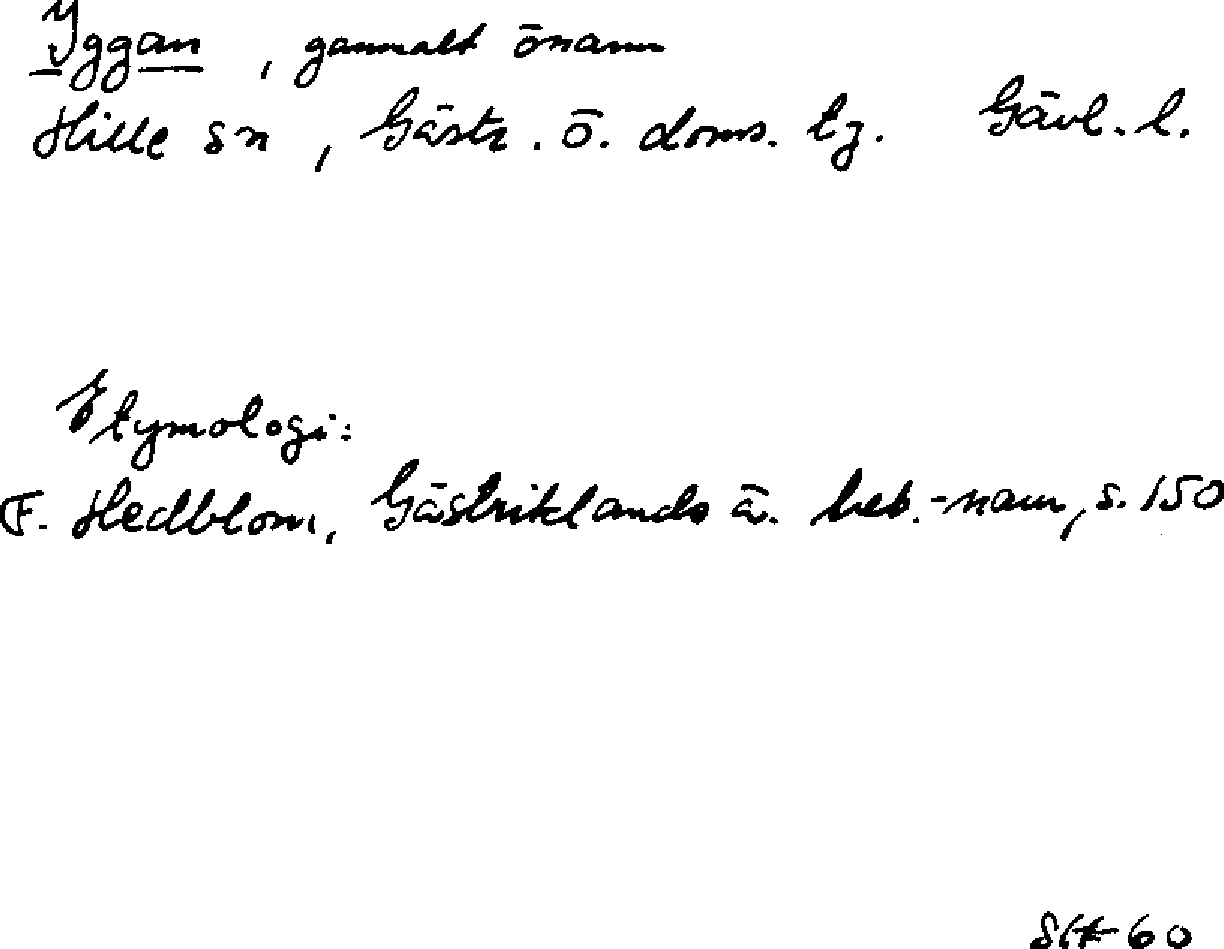 Yggan, gammalt önamn
Hille sn, Gästr. ö. doms. tg. Gävl. l.
Etymologi:
F. Hedblom, Gästriklands ä. beb.-namn, s. 150
60